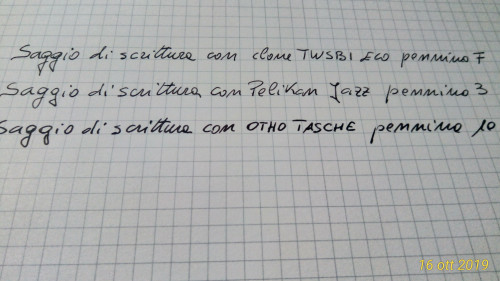 Saggio di scrittura con clone TWSBI Eco pennino F
Saggio di scrittura con Pelikan Jazz pennino 3
Saggio di scrittura con OTHO TASCHE pennino 10
16 ott 2019